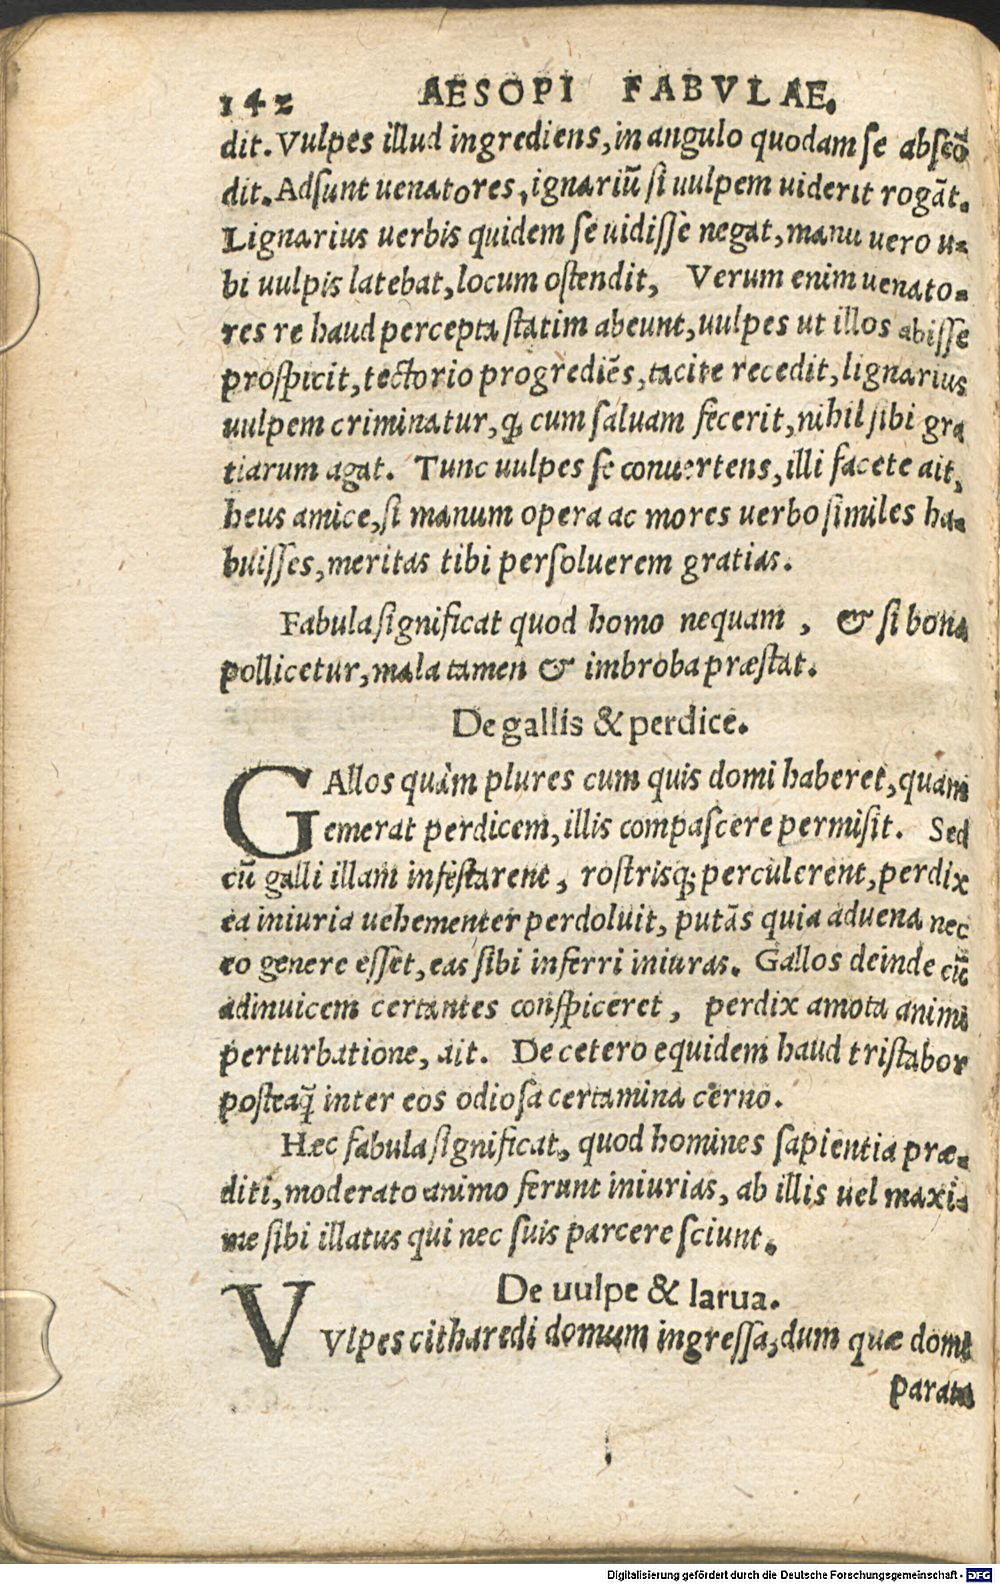 142 AESOPI FABVLAE.
dit. Vulpes illud ingrediens, in angulo quodam se abscõ
dit. Adsunt uenatores, ignariũ si uulpem uiderit rogãt.
Lignarius uerbis quidem se uidisse negat, manu uero u-
bi uulpis latebat, locum ostendit, Verum enim uenato-
res re haud percepta statim abeunt, uulpes ut illos abisse
prospicit, tectorio progrediẽs, tacite recedit, lignarius
uulpem criminatur, q̃ cum saluam fecerit, nihil sibi gra
tiarum agat. Tunc uulpes se conuertens, illi facete ait,
heus amice, si manum opera ac mores uerbo similes ha-
buisses, meritas tibi persoluerem gratias.
Fabula significat quod homo nequam, & si bona
pollicetur, mala tamen & imbroba præstat.
De gallis & perdice.
GAllos quàm plures cum quis domi haberet, quam
emerat perdicem, illis compascere permisit. Sed
cũ galli illam infestarent, rostrisq; perculerent, perdix
ea iniuria uehementer perdoluit, putãs quia aduena nec
eo genere esset, eas sibi inferri iniuras. Gallos deinde cũ
adinuicem certantes conspiceret, perdix amota animi
perturbatione, ait. De cetero equidem haud tristabor
posteaq̃ inter eos odiosa certamina cerno.
Hæc fabula significat, quod homines sapientia præ-
diti, moderato animo ferunt iniurias, ab illis uel maxi-
me sibi illatus qui nec suis parcere sciunt.
De uulpe & larua.
VVlpes citharedi domum ingressa, dum quæ domi
parata
Digitalisierung gefördert durch die Deutsche Forschungsgemeinschaft - DFG